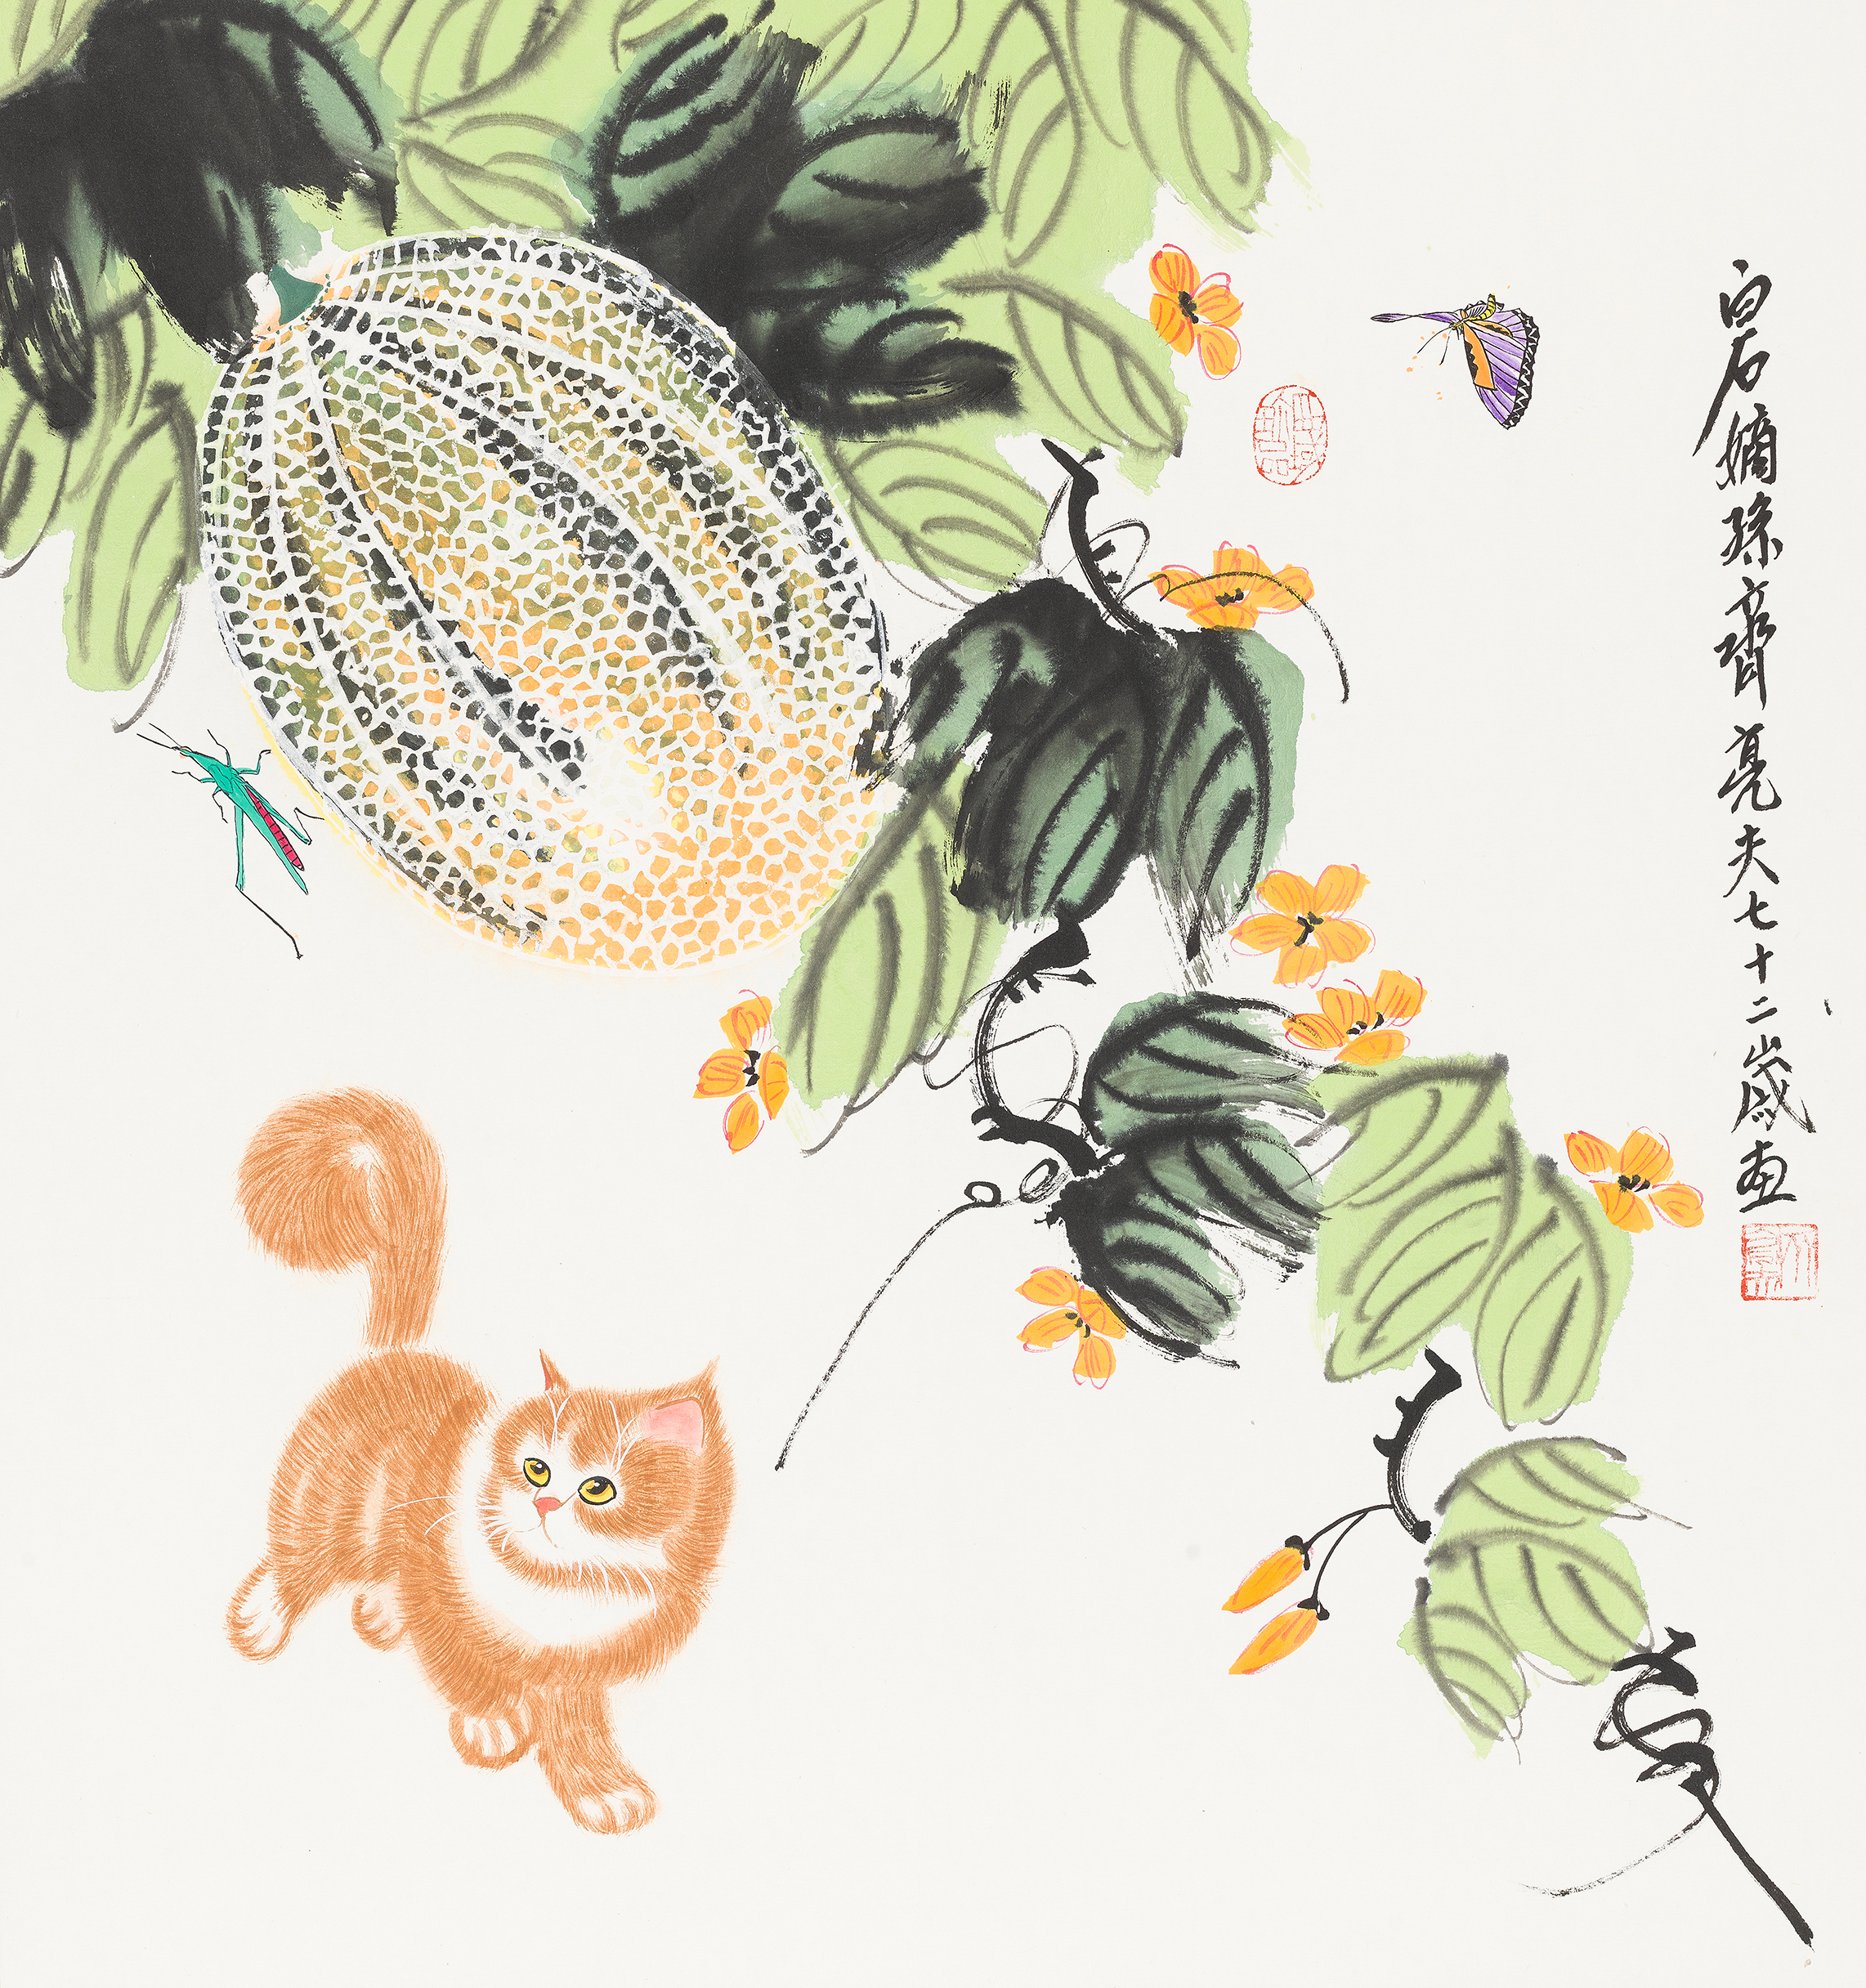 白石嫡孫齊亮夫七十二歲画